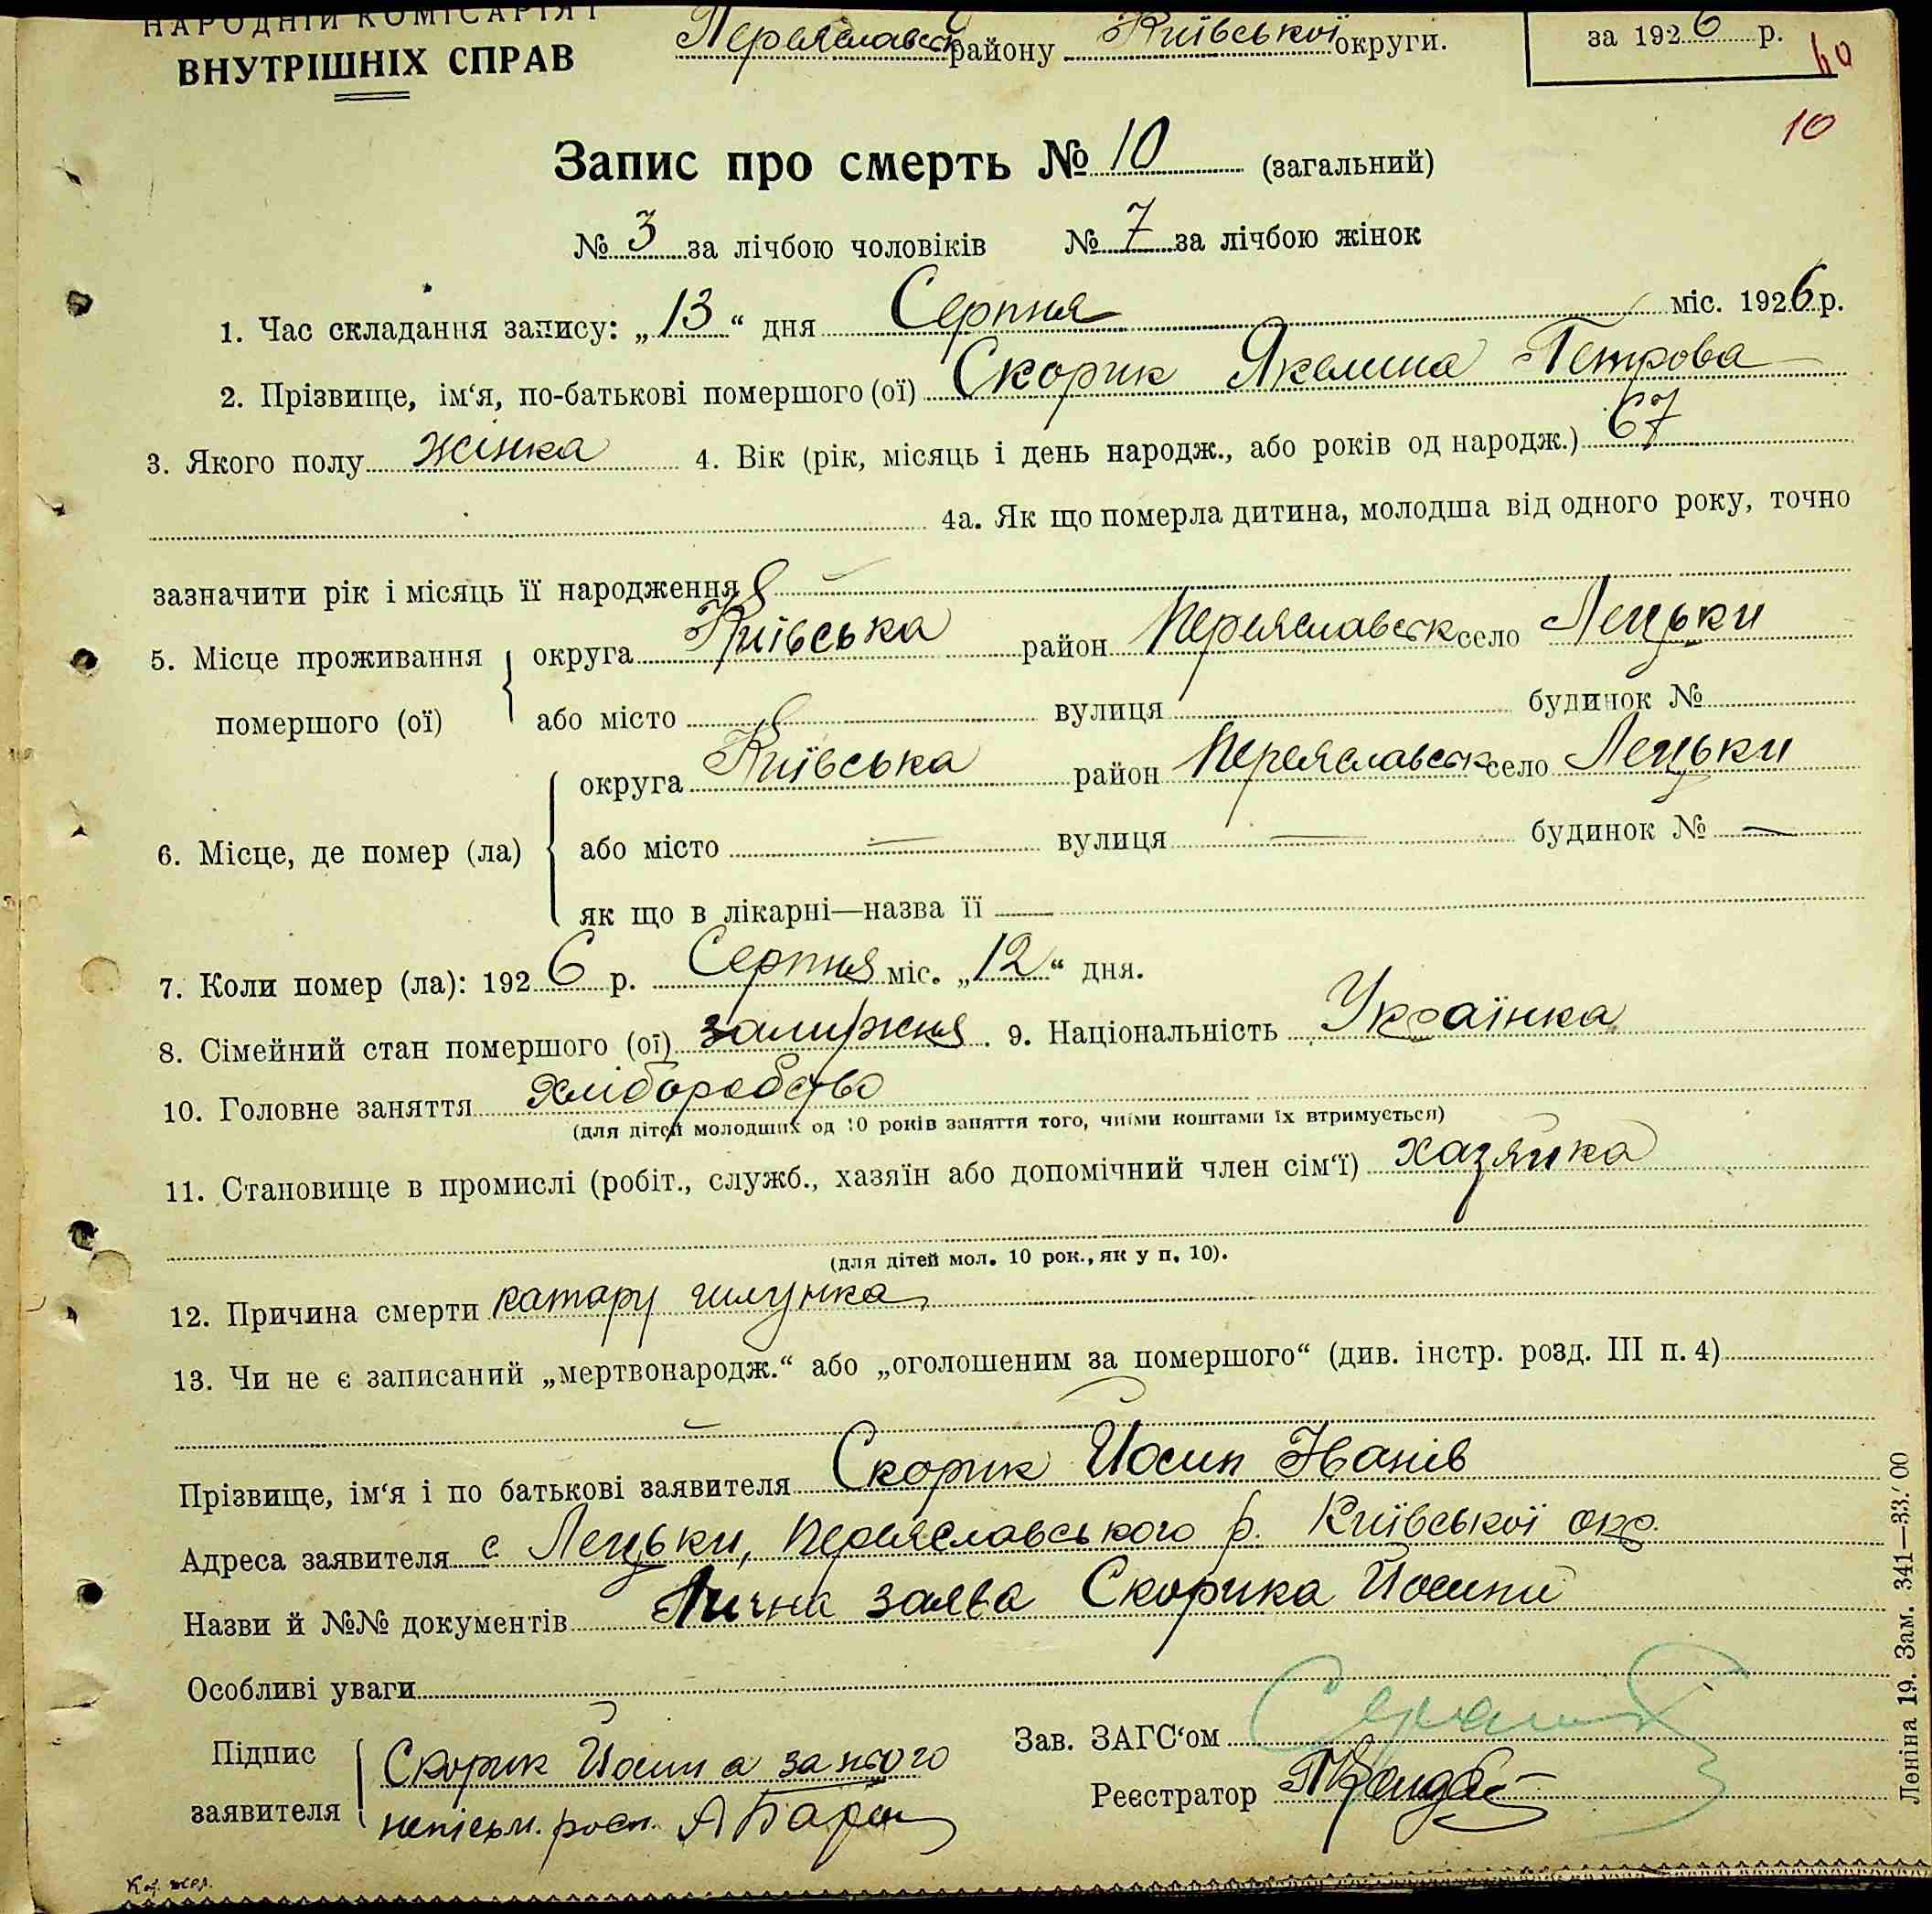 НАРОДНІЙ КОМІСАРІЯТ
ВНУТРІШНІХ СПРАВ
Переяславськ району Київської округи.
за 1926 р.
10
Запис про смерть № 10 (загальний)
№ 3 за лічбою чоловіків № 7 за лічбою жінок
1. Час складання запису: „13“ дня Серпня міс. 1926 р.
2. Прізвище, ім‘я, по-батькові помершого (ої) Скорик Якелина Петрова
3. Якого полу жінка 4. Вік (рік, місяць і день народж., або років од народж.) 67
4а. Як що померла дитина, молодша від одного року, точно
зазначити рік і місяць її народження
5. Місце проживання округа Київська район Переяславськ село Лецьки
помершого (ої) або місто вулиця будинок №
округа Київська район Переяславськ село Лецьки
6. Місце, де помер (ла) або місто — вулиця — будинок № —
як що в лікарні—назва її —
7. Коли помер (ла): 1926 р. Серпня міс. „12“ дня.
8. Сімейний стан помершого (ої) замужня. 9. Національність Українка
10. Головне заняття хліборобство
(для дітей молодших од 10 років заняття того, чиїми коштами їх втримується)
11. Становище в промислі (робіт., служб., хазяїн або допомічний член сім‘ї) хазяйка
(для дітей мол. 10 рок., як у п. 10).
12. Причина смерти катару шлунка
13. Чи не є записаний „мертвонародж.“ або „оголошеним за помершого“ (див. інстр. розд. III п. 4)
Прізвище, ім‘я і по батькові заявителя Скорик Йосип Іванів
Адреса заявителя с Лецьки, Переяславського р. Київської окр.
Назви й №№ документів Лична заява Скорика Йосипа
Особливі уваги
Підпис заявителя Скорик Йосип а за нього
непісьм. росп. А Бара
Зав. ЗАГС‘ом
Реєстратор
Леніна 19. Зам. 341—33.‘00